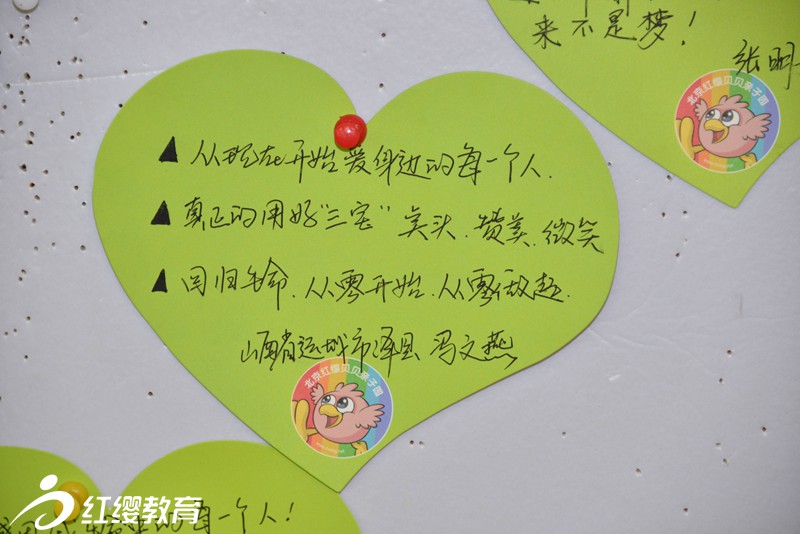 来不是梦！
张明
北京红缨贝贝亲子园
▲ 从现在开始爱身边的每一个人.
▲ 真正的用好“三宝” 点头、赞美、微笑
▲ 回归生命.从零开始.从零做起.
山西省运城市泽县 冯文燕
北京红缨贝贝亲子园
红缨教育
每一个人!